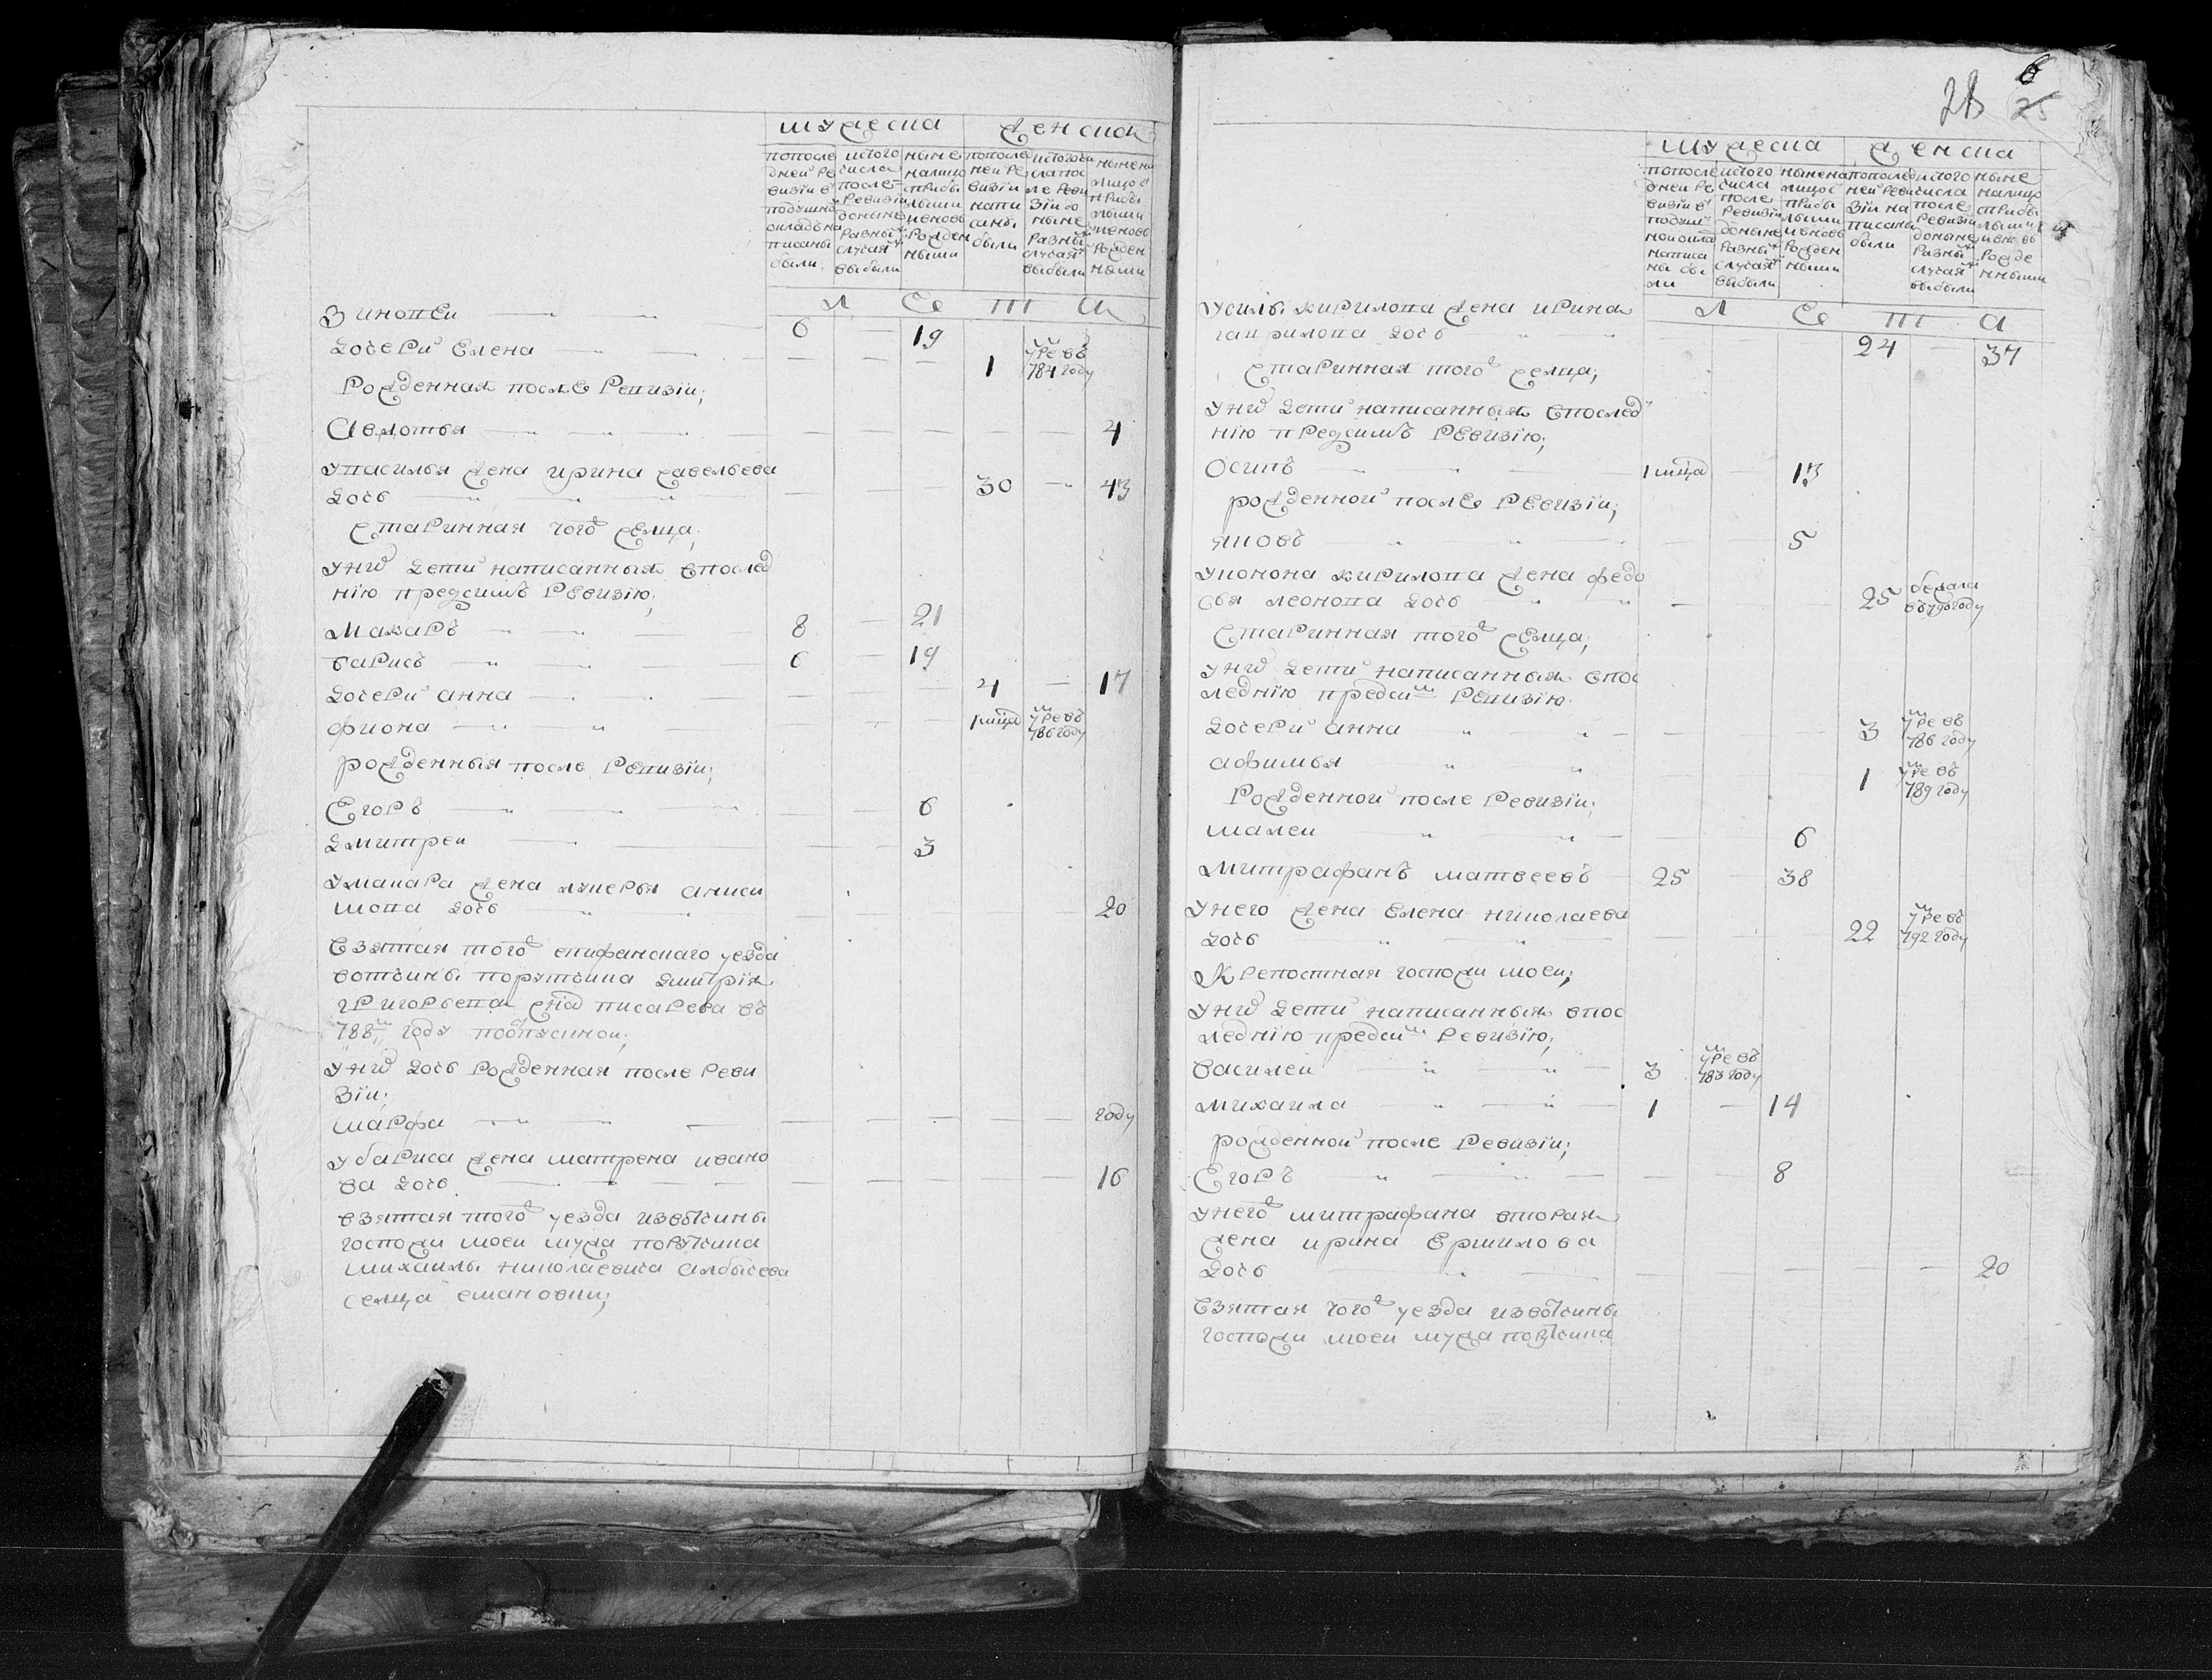 мужеска женска
попосле дней ре визiи в подушно окладъ на писаны были
ис того числа после ревизiи доныне разны случая выбыли
ныне налицо с прибы лыми и вновь рожден ными
попосле ней ре визiи напи саны были
ис того чи сла посл ле реви зiи до ныне разны случая выбыли
ныне на лицо с прибы лыми и вновь рожден ными
Л е т а
Зиновеи 6 19
дочери Елена 1 умре въ 784 году
рожденная после Ревизiи;
Авдотья 4
у василья жена ирина савельева
дочь 30 43
старинная того селца;
у них дети написанныя впослед
нию предсимъ Ревизию;
Макаръ 8 21
барисъ 6 19
дочери анна 4 17
фиона 1 мца умре въ 786 году
рожденныя после Ревизiи;
Егоръ 6
дмитреи 3
у макара жена лукерья аниси
мова дочь 20
взятая того епифанскаго уезда
вотчины порутчика дмитрия
григорьева сна писарева въ
788м году поотпускной;
у них дочь рожденная после реви
зiи;
марфа году
у бариса жена матрена ивано
ва дочь 16
взятая того уезда извотчины
госпожи моеи мужа порутчика
михаилы николаевича албычева
селца емановки;
28 25 6
мужеска женска
попосле дней ре визiи в подуш ной оклад написа ны бы ли
ис того числа после ревизiи доныне разны случая выбыли
ныне на лицо с прибы лыми и вновь рожден ными
попослед ней реви зiи на писаны были
ис того числа после ревизiи доныне разны случая выбыли
ныне налицо с прибы лыми и вновь рожде нными
Л е т а
у силы кирилова жена ирина
гаврилова дочь 24 37
старинная того селца;
у них дети написанныя впослед
нию предсимъ Ревизию;
Осипъ 1 мца 13
рожденной после Ревизiи;
яковъ 5
у конона кирилова жена федо
сья леонова дочь 25 бежала въ 790 году
старинная того селца;
у них дети написанныя впос
леднию предсим Ревизию.
дочери анна 3 умре въ 786 году
афимья 1 умре въ 789 году
Рожденной после Ревизiи;
макеи 6
митрафанъ матвеевъ 25 38
у него жена Елена николаева
дочь 22 умре въ 792 году
Крепостная госпожи моеи;
у них дети написанныя впос
леднию предсим Ревизию;
василеи 3 умре въ 783 году
михаила 1 14
рожденной после Ревизiи;
Егоръ 8
у него митрафана вторая
жена ирина Ермилова
дочь 20
взятая того уезда извотчины
госпожи моеи мужа порутчика